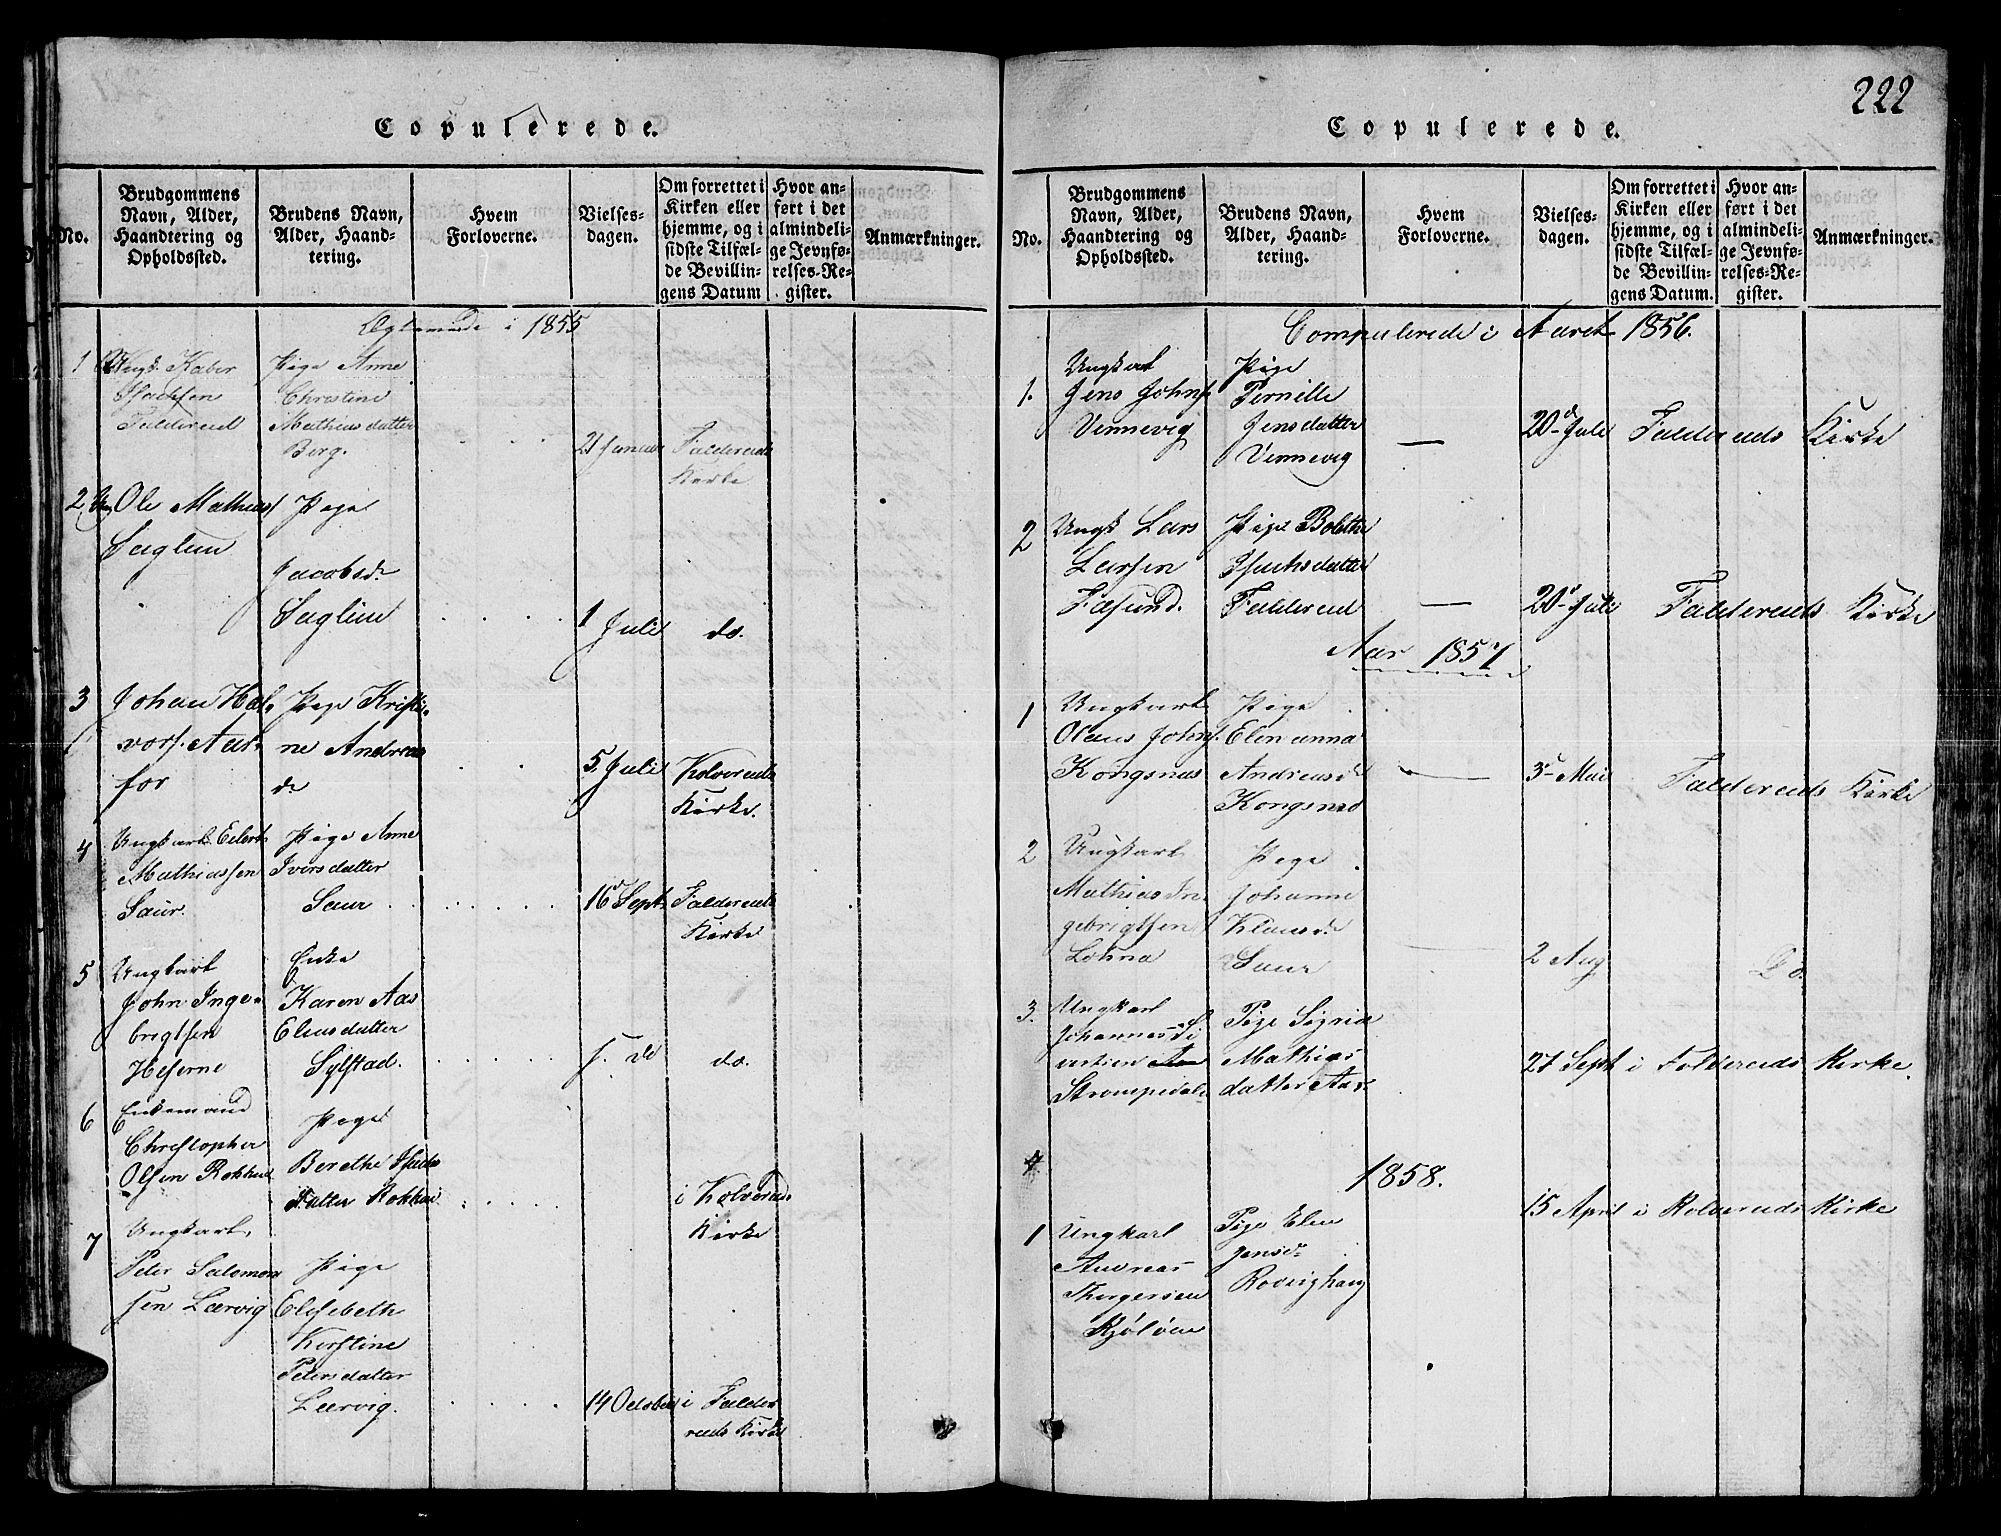 Copulerede.
No.
Brudgommens
Navn, Alder,
Haandtering og
Opholdssted.
Brudens Navn,
Alder, Haand-
tering.
Hvem
Forloverne.
Vielses-
dagen.
Om forrettet i
Kirken eller
hjemme, og i
sidste Tilfæl-
de Bevillin-
gens Datum
Hvor an-
ført i det
almindeli-
ge Jevnfø-
relses-Re-
gister.
Anmærkninger.
i 1855
1
Ungk.
Isachsen
Faldereid
Pige Anne
Christine
Mathiasdatter
Berg.
21 Januar
Faldereids
Kirke
2
Ole Mathias
Saglien
Pige
Jacobsdr
Saglien
1 Juli
do.
3
Johan Hal-
vors.
for
Pige Kristi-
ne Andreas
dr
5. Juli
Kolvereids
Kirke.
4
Ungkarl Eilert
Mathiassen
Saur.
Pige Anne
Iversdatter
Saur
16 Sept.
Faldereids
Kirke
5
Ungkarl
John Inge-
brigtsen
Heserne
Enke
Karen Aas
Eliasdatter
Sylstad.
do.
6
Enkemand
Christopher
Olsen
Pige
Berethe Isachs
datter
i Kolvereids
Kirke
7
Ungkarl
Peter Salomon
sen Lærvig
Pige
Elisebeth
Kirstine
Petersdatter
Lærvig.
14 Octobr
i Falde
reids Kirke
222
Copulerede.
No.
Brudgommens
Navn, Alder,
Haandtering og
Opholdssted.
Brudens Navn,
Alder, Haand-
tering.
Hvem
Forloverne.
Vielses-
dagen.
Om forrettet i
Kirken eller
hjemme, og i
sidste Tilfæl-
de Bevillin-
gens Datum.
Hvor an-
ført i det
almindeli-
ge Jevnfø-
relses-Re-
gister.
Anmærkninger.
Compulerede i Aaret 1856.
1.
Ungkarl
Jens Johns.
Vennevig
Pige
Pernille
Jensdatter
Vennevig
20d Juli
Faldereids Kirke
2
Ungk Lars
Larsen
Fæsund.
Pige Bolette
Isachsdatter
Faldereid
20d Juli
Faldereids Kirke
Aar 1857
1
Ungkarl
Olaus Johns.
Kongsnæs
Pige
Elen anna
Andreasdr
Kongsnæs
3d Mai
Faldereids Kirke
2
Ungkarl
Mathias In-
gebrigtsen
Lohna
Pige
Johanne
Klausdr
Saur
2 Aug
Do
3.
Ungkarl
Johannes Si
vertsen
Strompedal
Pige Sigrid
Mathias
datter Aas
27 Sept i Foldereids Kirke.
4
1858.
1
Ungkarl
Andreas
Thorgersen
Kjøløen
Pige Elen
Jensdr
Rodseighaug
15 April i Kolvereids Kirke